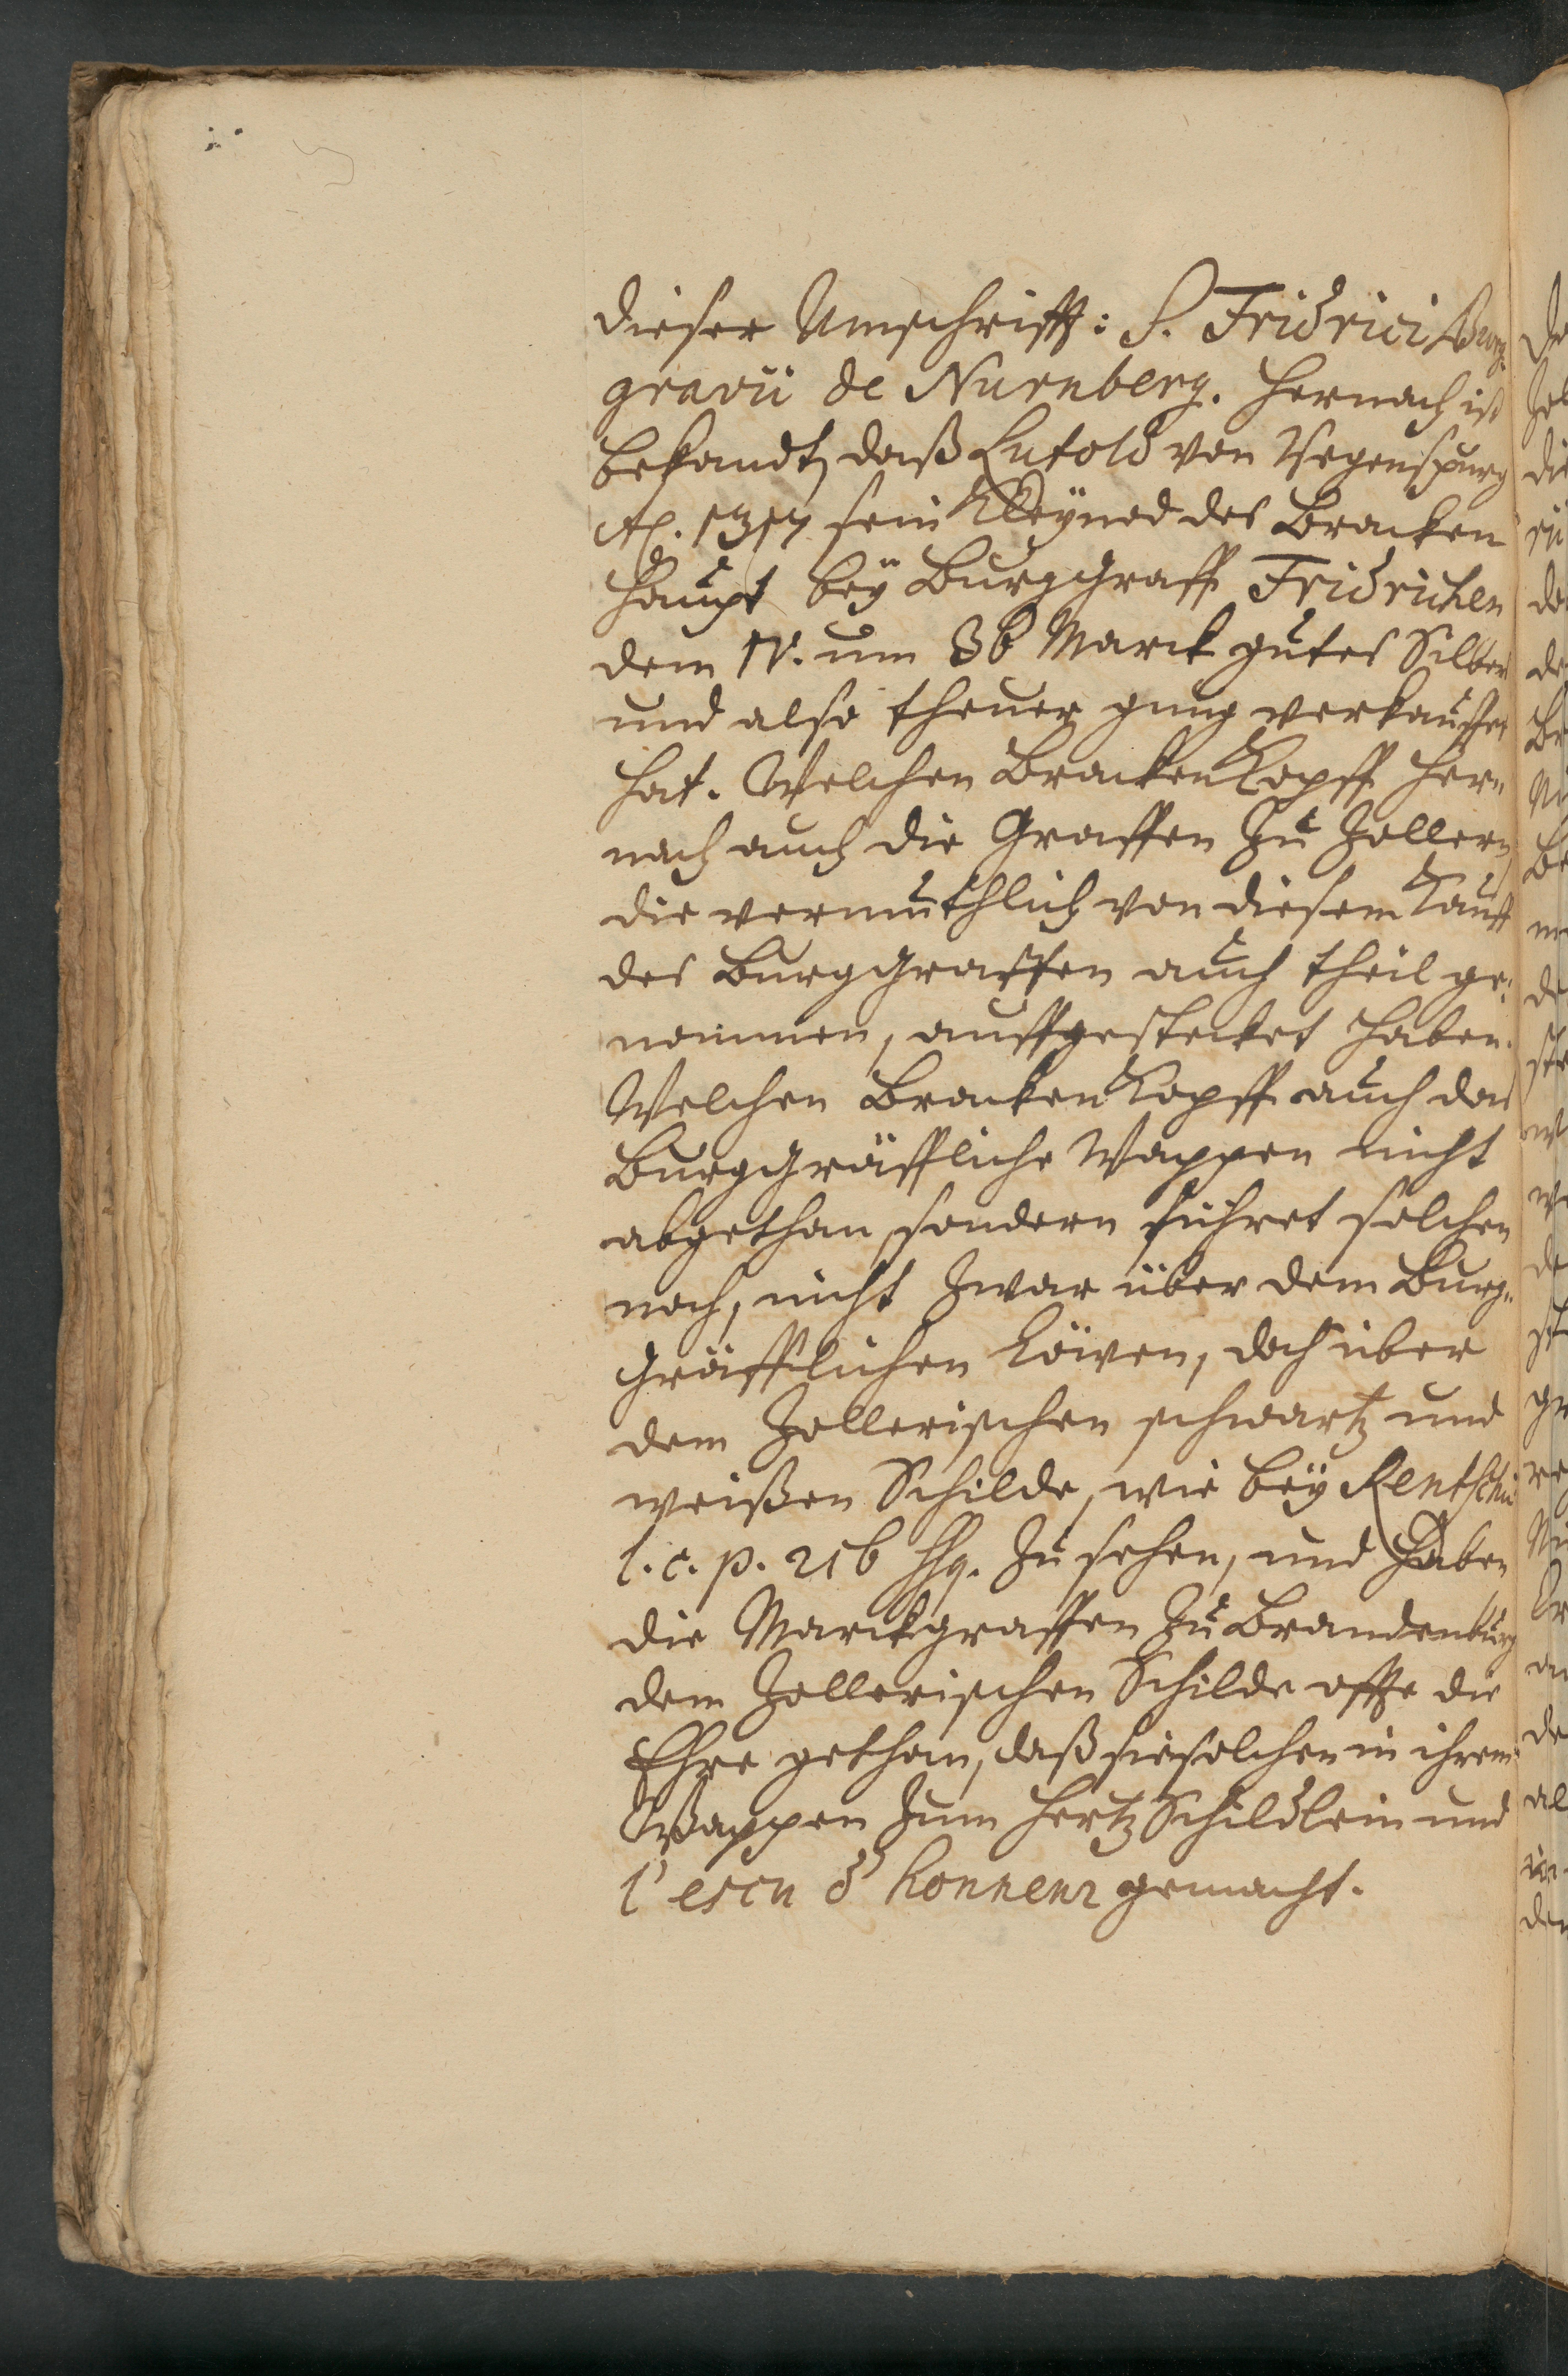 dieser Umschrifft: S. Fridrici Burg-
gravii de Nurnberg. Hernach ist
bekandt, daß Lutold von Regenspurg
Aº. 1317 sein Kleynod des Bracken
Haupt bey Burggraff Fridrichen
dem IV. um 36 Marck gutes Silber
und also theuer gnug verkauffet
hat. Welchen Bracken Kopff her-
nach auch die Graffen zu Zollern,
die vermuthlich von diesem Kauff
des Burggraffen auch theil ge-
nommen, auffgestecket haben.
Welchen Bracken Kopff auch das
Burggräffliche Wappen nicht
abgethan, sondern führet solchen
noch, nicht zwar über dem Burg-
gräfflichen Löwen, doch über
dem Zollerischen schwartz und
weißen Schilde, wie bey Rentsch
l. c. p. 216 sq. zu sehen, und haben
die Marckgraffen zu Brandenburg
dem Zollerischen Schilde offt die
Ehre gethan, daß sie solchen in ihrem
Wappen zum Hertz Schildlein und
l'escu d'honneur gemacht.